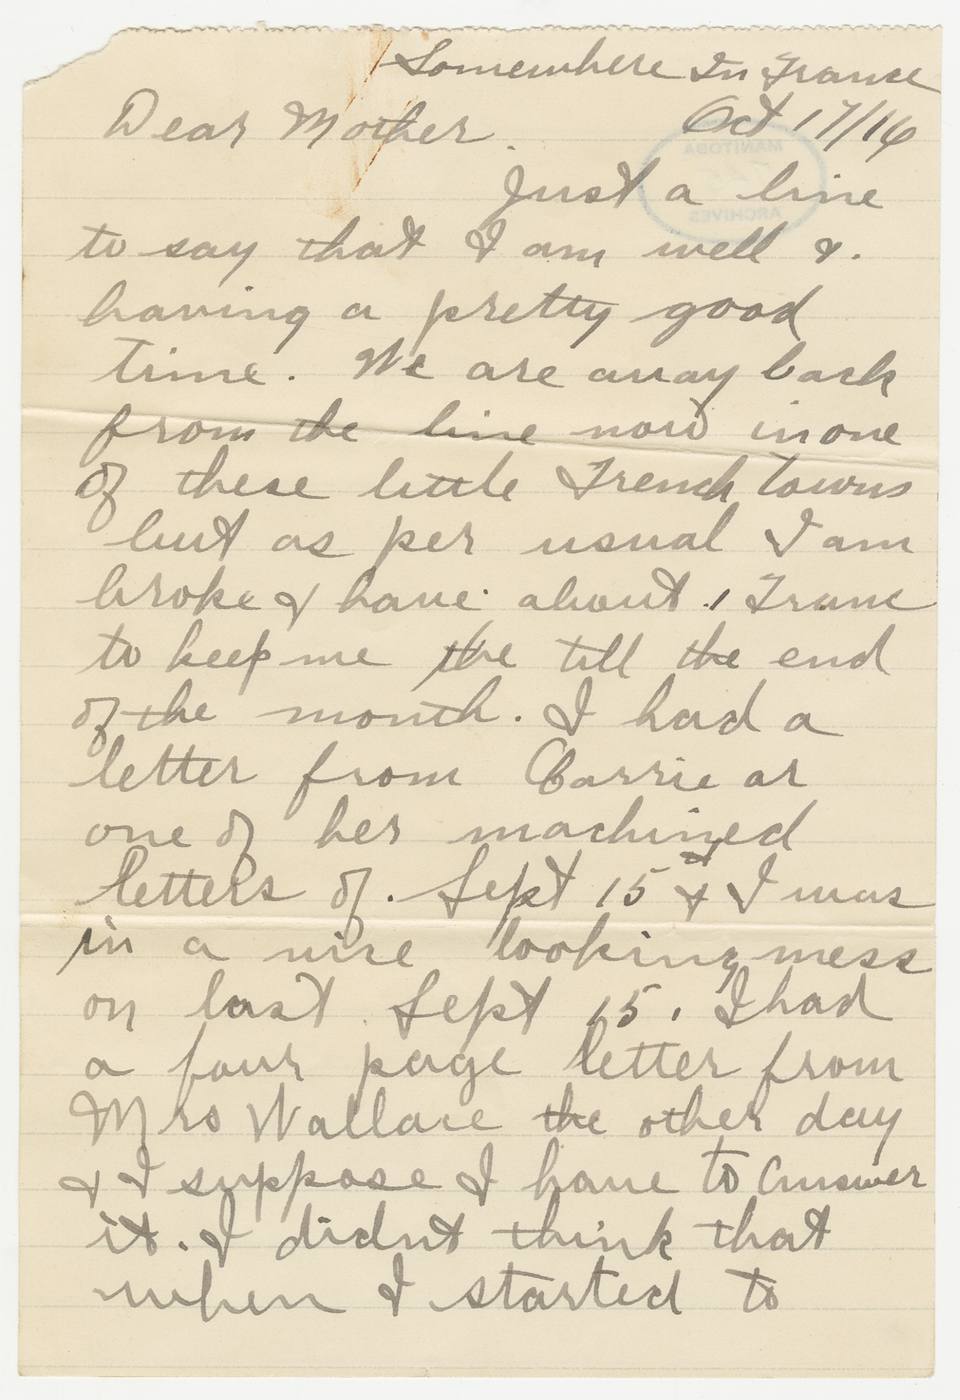 Somewhere In France
Dear Mother. Oct 17/16
MANITOBA
ARCHIVES
Just a line
to say that I am well &.
having a pretty good
time. We are away back
from the line now in one
of these little French towns
but as per usual I am
broke & have about 1 Franc
to keep me the till the end
of the month. I had a
letter from Carrie or
one of her machined
letters of. Sept 15th & I was
in a nice looking mess
on last Sept 15. I had
a four page letter from
Mrs Wallace the other day
& I suppose I have to answer
it. I didnt think that
when I started to